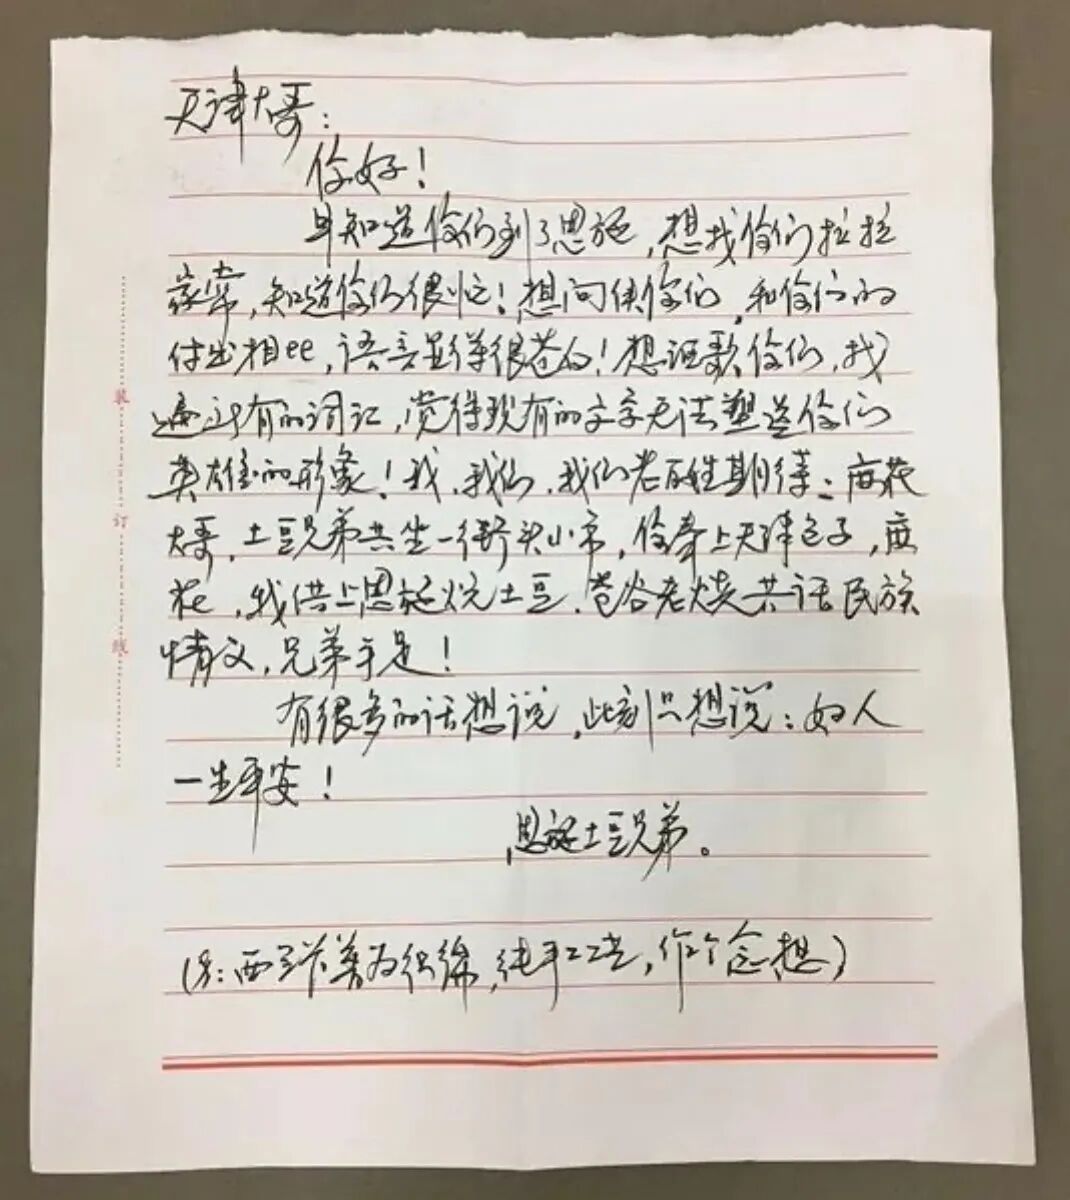 天津大哥：
你好！
早知道你们到了恩施，想找你们拉拉
家常，知道你们很忙！想问候你们，和你们的
付出相比，语言显得很苍白！想讴歌你们，找
遍所有的词汇，觉得现有的文字无法塑造你们
英雄的形象！我，我们，我们老百姓期待：麻花
大哥，土豆兄弟共坐一街头小市，你奉上天津包子，麻
花，我供上恩施炕土豆，苞谷老烧共话民族
情义，兄弟手足！
有很多的话想说，此刻只想说：好人
一生平安！
恩施土豆兄弟。
西兰卡普为织锦，纯手工艺，作个念想）
装
订
线